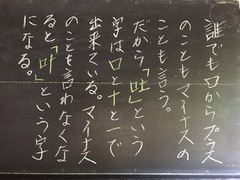 誰でも口からプラス
のこともマイナスの
ことも言う。
だから「吐」という
字は口と十と一で
出来ている。マイナス
のことを言わなくな
ると「叶」という字
になる。